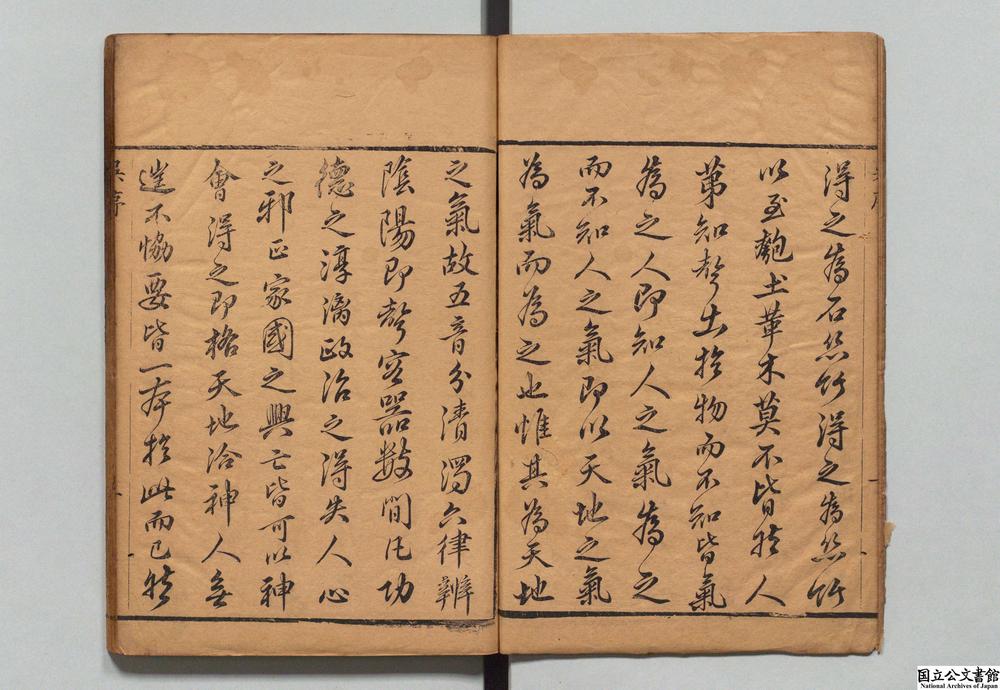 得之為石絲竹得之為絲竹
以至匏土革木莫不皆於人
第知聲出於物而不知皆氣
為之人即知人之氣為之
而不知人之氣即以天地之氣
為氣而為之也惟其為天地
之氣故五音分清濁六律辨
陰陽即聲容器數間凡功
德之淳漓政治之得失人心
之邪正家國之興亡皆可以神
會得之即格天地洽神人無
不恊要皆一本於此而已於
吳序
国立公文書館
National Archives of Japan